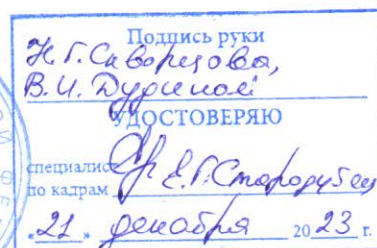 Подпись руки
Н.Г. Скворцова,
В.И. Дудиной
УДОСТОВЕРЯЮ
специалист
по кадрам Е.Г. Стародубец
"21" декабря 2023 г.